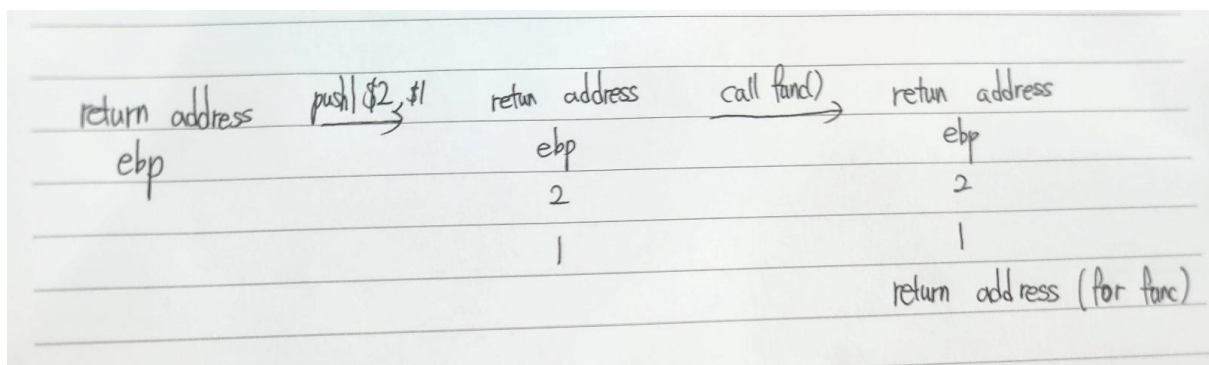 return address pushl $2, $1 retun address call func() retun address
ebp ebp ebp
2 2
1 1
return address (for func)